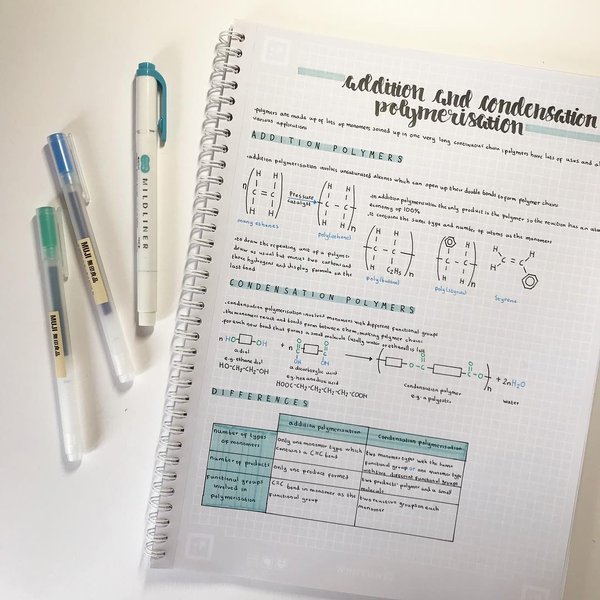 addition and condensation
polymerisation
·polymers are made up of lots of monomers joined up in one very long continuous chain ; polymers have lots of uses and
various applications
ADDITION POLYMERS
·addition polymerisation involves unsaturated alkenes which can open up their double bonds to form polymer chains
n
H H
C = C
H H
many ethenes
Pressure
catalyst
H H
C - C
H H
n
poly(ethene)
·in addition polymerisation the only product is the polymer so the reaction has an atom
economy of 100%
·it contains the same type and number of atoms as the monomers
·to draw the repeating unit of a polymer
draw as usual but minus two carbons and
three hydrogens and display formula on the
last bond
H H
C - C
H C₂H₅
n
poly(butene)
H
C - C
H H
n
poly(styrene)
H
H
C = C
H
styrene
CONDENSATION POLYMERS
·condensation polymerisation involves monomers with different functional groups
·the monomers react and bonds form between them, making polymer chains
·for each new bond that forms a small molecule (usually water or ethanol) is lost
n HO OH + n
O O
C C
OH OH
O O
O-C C-O
n
+ 2nH₂O
a diol
e.g. ethanediol
HO-CH₂-CH₂-OH
a dicarboxylic acid
e.g. hexanedioic acid
HOOC-CH₂-CH₂-CH₂-CH₂-COOH
Condensation polymer
e.g. a polyester
water
DIFFERENCES
addition polymerisation
condensation polymerisation
number of types
of monomers
only one monomer type which
contains a C=C bond
two monomer types with the same
functional group or one monomer type
with two different functional groups
number of products
only one product formed
two products: polymer and a small
molecule
functional groups
involved in
polymerisation
C=C bond in monomer as the
functional group
two reactive groups on each
monomer
MILDLINER
MUJI 無印良品
MUJI 無印良品